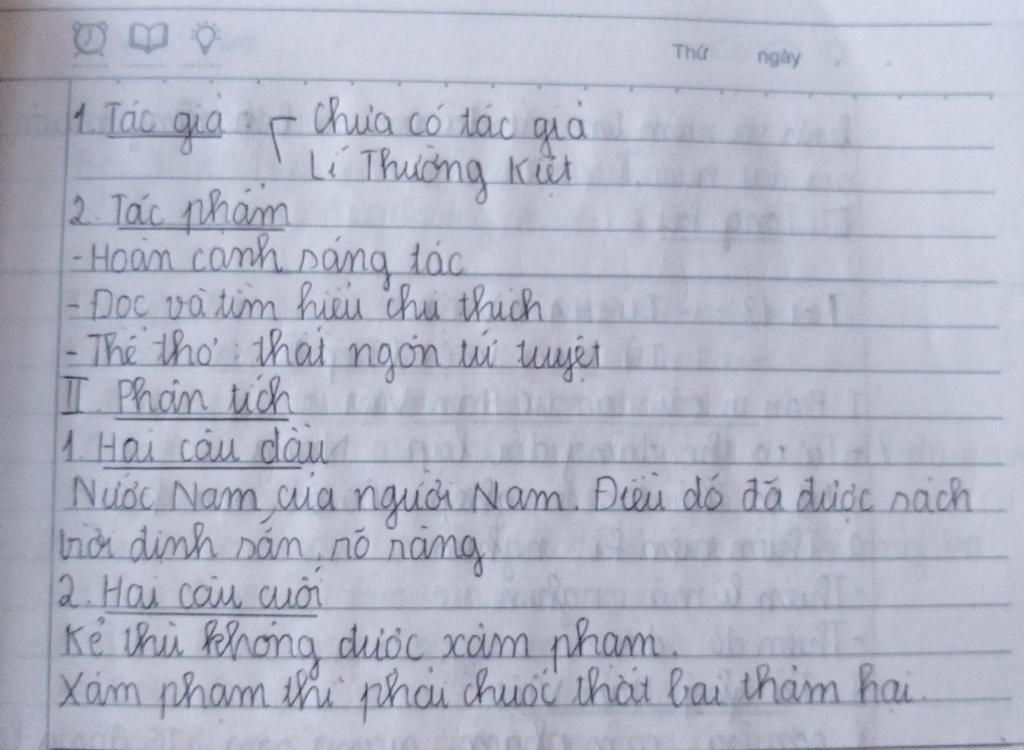 Thứ ngày
1. Tác giả : Chưa có tác giả
Lí Thường Kiệt
2. Tác phẩm
- Hoàn cảnh sáng tác
- Đọc và tìm hiểu chú thích
- Thể thơ : thất ngôn tứ tuyệt
II Phân tích
1. Hai câu đầu
Nước Nam của người Nam. Điều đó đã được sách
trời định sẵn, rõ ràng
2. Hai câu cuối
Kẻ thù không được xâm phạm.
Xâm phạm thì phải chuốc thất bại thảm hại.